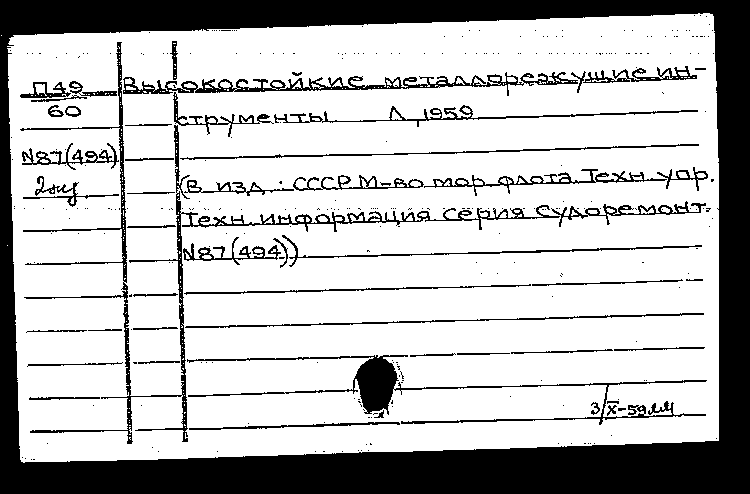 П49 Высокостойкие металлорежущие ин-
60 струменты Л, 1959
N87(494)
2 экз (В изд.: СССР М-во мор. флота. Техн. упр.
Техн. информация серия Судоремонт.
N87(494))
3/X-59